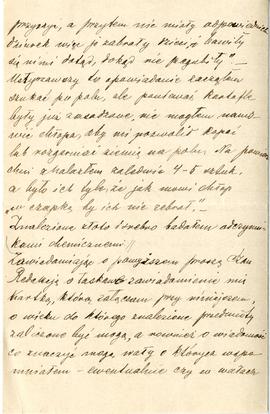 przyczyn, a przytem nie miały odpowiednich
dziurek więc je zabrały dzieci i bawiły
się niemi dotąd, dokąd nie pogubiły". –
Usłyszawszy to opowiadanie zacząłem
szukać po polu, ale ponieważ kartofle
były już zasadzone, nie mogłem namó-
wić chłopa, aby mi pozwolił kopać
lub rozgarniać ziemię na polu. Na powierz-
chni znalazłem zaledwie 4-5 sztuk,
a było ich tyle, że jak mówi chłop
"w czapkę by ich nie zebrał". –
Znalezione złoto i srebro badałem odczynni-
kami chemicznemi.
Zawiadamiając o powyższem proszę Szan.
Redakcję o łaskawe zawiadomienie mię
kartką, którą załączam przy niniejszem,
o wieku do którego znalezione przedmioty
zaliczone być mogą, a również o wiadomość
co znaczyć mogą wały o których wspo-
mniałem – ewentualnie czy w wałach